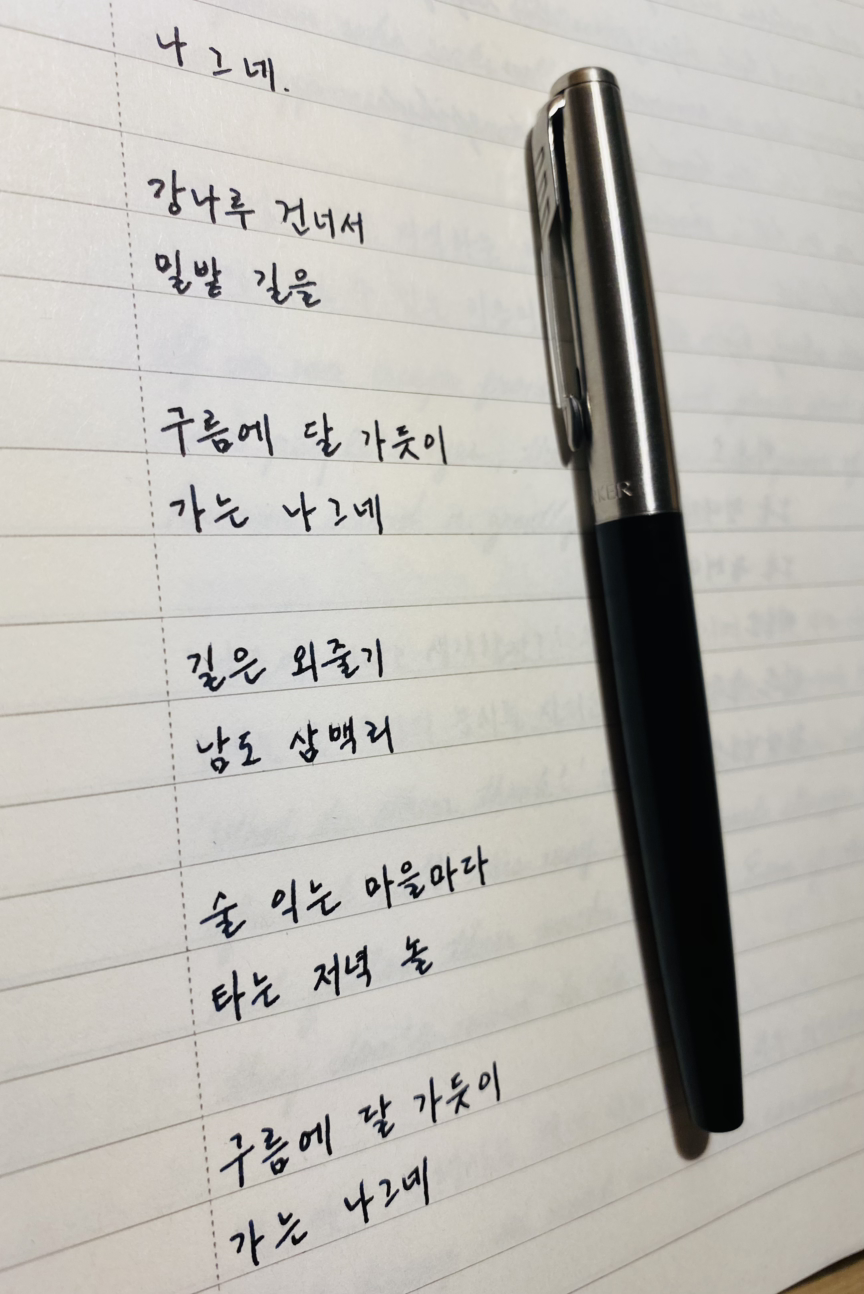 나그네.
강나루 건너서
밀밭 길을
구름에 달 가듯이
가는 나그네
길은 외줄기
남도 삼백리
술 익는 마을마다
타는 저녁 놀
구름에 달 가듯이
가는 나그네